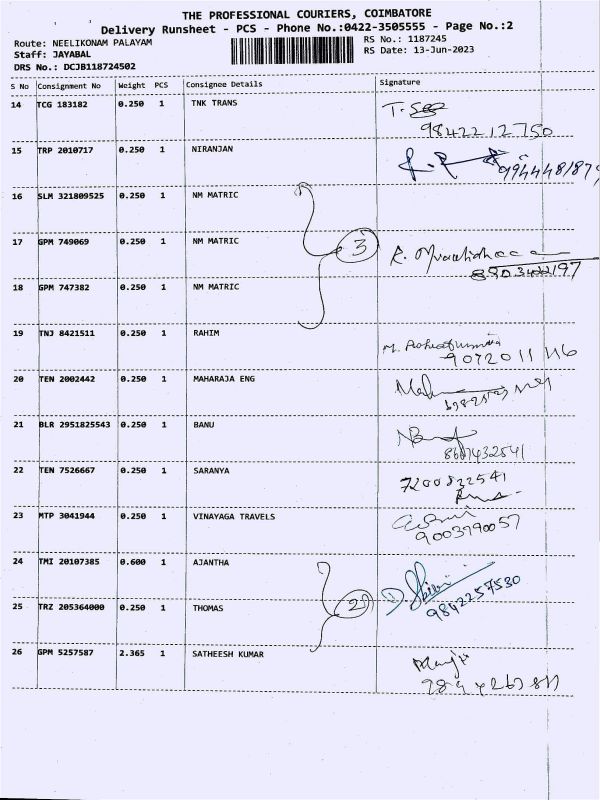 THE PROFESSIONAL COURIERS, COIMBATORE
Delivery Runsheet - PCS - Phone No.:0422-3505555 - Page No.:2
Route: NEELIKONAM PALAYAM RS No.: 1187245
Staff: JAYABAL RS Date: 13-Jun-2023
DRS No.: DCJB118724502
S No Consignment No Weight PCS Consignee Details Signature
14 TCG 183182 0.250 1 TNK TRANS
9842212750
15 TRP 2010717 0.250 1 NIRANJAN
16 SLM 321809525 0.250 1 NM MATRIC
17 GPM 749069 0.250 1 NM MATRIC 3
18 GPM 747382 0.250 1 NM MATRIC
19 TNJ 8421511 0.250 1 RAHIM
20 TEN 2002442 0.250 1 MAHARAJA ENG
21 BLR 2951825543 0.250 1 BANU
22 TEN 7526667 0.250 1 SARANYA
23 MTP 3041944 0.250 1 VINAYAGA TRAVELS
9003790057
24 TMI 20107385 0.600 1 AJANTHA
25 TRZ 205364000 0.250 1 THOMAS 2
9842257530
26 GPM 5257587 2.365 1 SATHEESH KUMAR